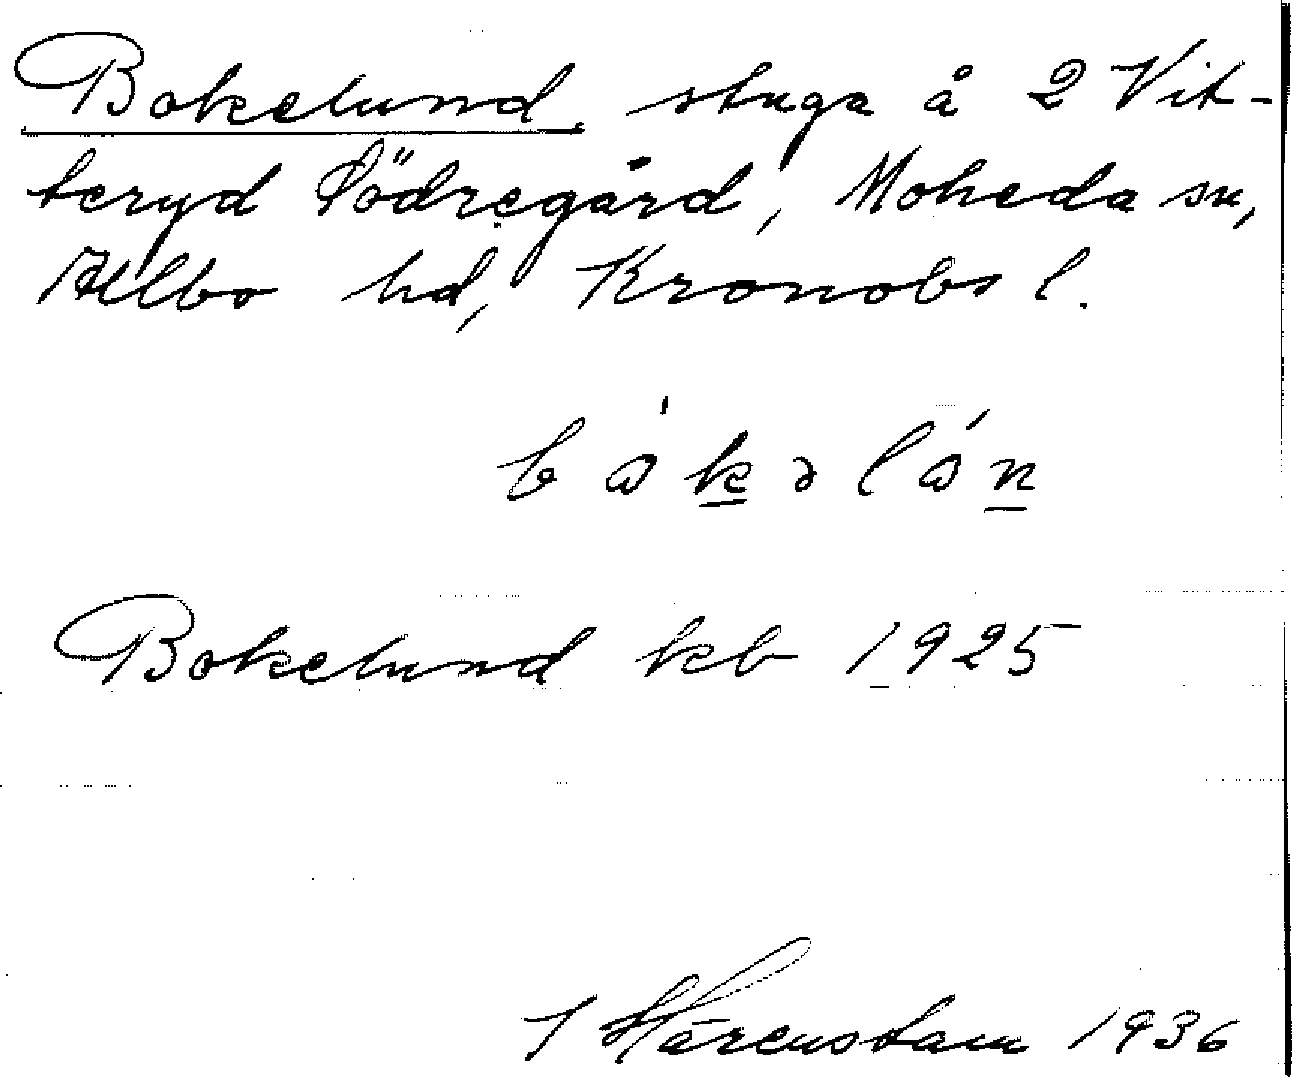 Bokelund, stuga å 2 Vit-
teryd Södregård, Moheda sn,
Allbo hd, Kronobs l.
båkəlån
Bokelund kb 1925
I Härenstam 1936